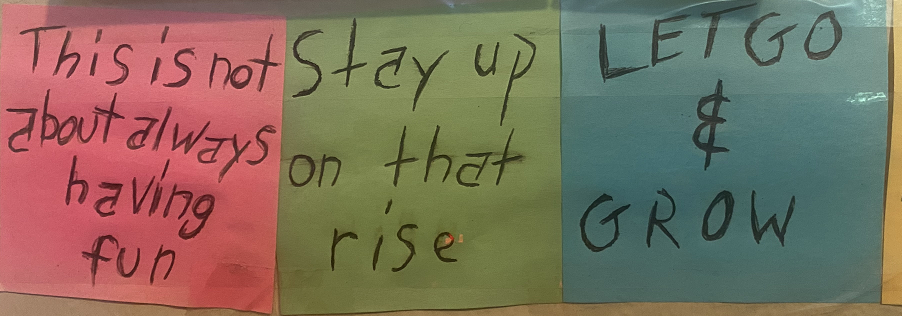 This is not
about always
having
fun
Stay up
on that
rise
LET GO
&
GROW